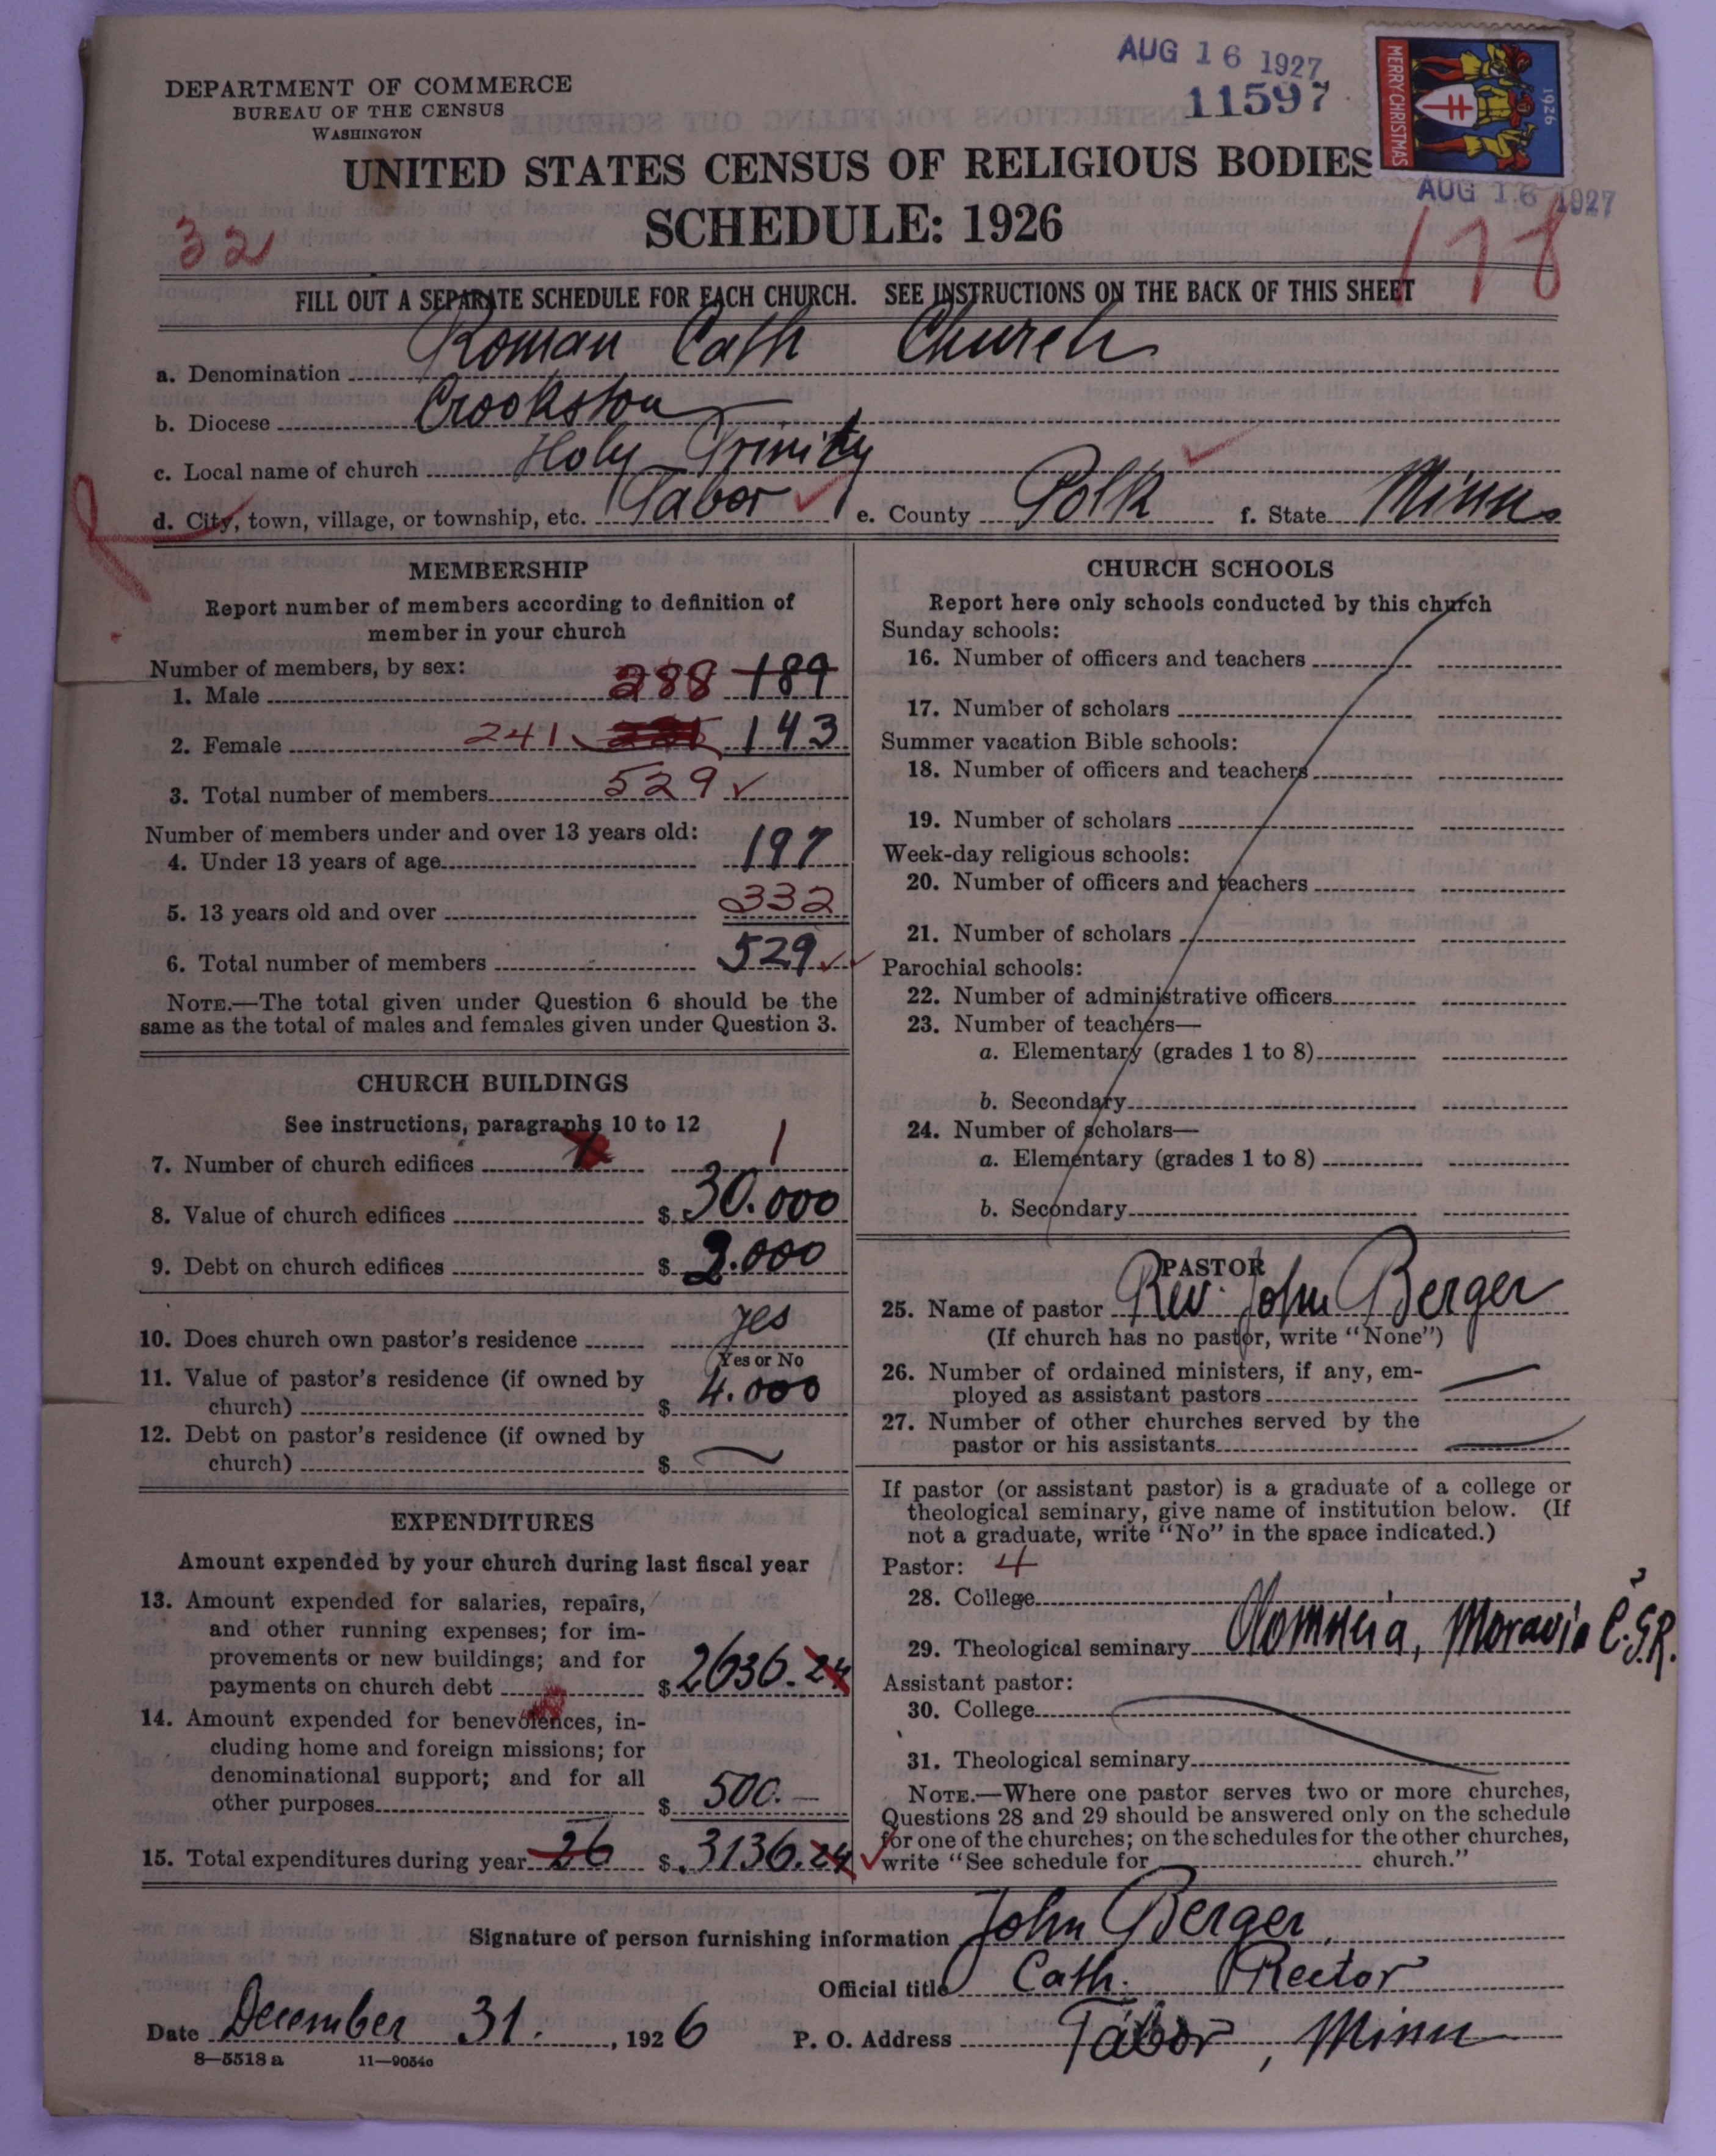 AUG 16 1927
11597
MERRY CHRISTMAS
1926
AUG 16 1927
DEPARTMENT OF COMMERCE
BUREAU OF THE CENSUS
WASHINGTON
UNITED STATES CENSUS OF RELIGIOUS BODIES
SCHEDULE: 1926
32
178
FILL OUT A SEPARATE SCHEDULE FOR EACH CHURCH. SEE INSTRUCTIONS ON THE BACK OF THIS SHEET
a. Denomination Roman Cath Church
b. Diocese Crookston
c. Local name of church Holy Trinity
d. City, town, village, or township, etc. Tabor e. County Polk f. State Minn.
MEMBERSHIP
Report number of members according to definition of
member in your church
Number of members, by sex:
1. Male 288 189
2. Female 241 143
3. Total number of members 529
Number of members under and over 13 years old:
4. Under 13 years of age 197
5. 13 years old and over 332
6. Total number of members 529
NOTE.—The total given under Question 6 should be the
same as the total of males and females given under Question 3.
CHURCH BUILDINGS
See instructions, paragraphs 10 to 12
7. Number of church edifices 1
8. Value of church edifices $ 30.000
9. Debt on church edifices $ 2.000
10. Does church own pastor's residence yes
Yes or No
11. Value of pastor's residence (if owned by
church) $ 4.000
12. Debt on pastor's residence (if owned by
church) $ —
EXPENDITURES
Amount expended by your church during last fiscal year
13. Amount expended for salaries, repairs,
and other running expenses; for im-
provements or new buildings; and for
payments on church debt $ 2636.24
14. Amount expended for benevolences, in-
cluding home and foreign missions; for
denominational support; and for all
other purposes $ 500.—
15. Total expenditures during year 26 $ 3136.24
CHURCH SCHOOLS
Report here only schools conducted by this church
Sunday schools:
16. Number of officers and teachers
17. Number of scholars
Summer vacation Bible schools:
18. Number of officers and teachers
19. Number of scholars
Week-day religious schools:
20. Number of officers and teachers
21. Number of scholars
Parochial schools:
22. Number of administrative officers
23. Number of teachers—
a. Elementary (grades 1 to 8)
b. Secondary
24. Number of scholars—
a. Elementary (grades 1 to 8)
b. Secondary
PASTOR
25. Name of pastor Rev. John Berger
(If church has no pastor, write "None")
26. Number of ordained ministers, if any, em-
ployed as assistant pastors —
27. Number of other churches served by the
pastor or his assistants —
If pastor (or assistant pastor) is a graduate of a college or
theological seminary, give name of institution below. (If
not a graduate, write "No" in the space indicated.)
Pastor: 4
28. College
29. Theological seminary Moravia Č.S.R.
Assistant pastor:
30. College
31. Theological seminary
NOTE.—Where one pastor serves two or more churches,
Questions 28 and 29 should be answered only on the schedule
for one of the churches; on the schedules for the other churches,
write "See schedule for church."
Signature of person furnishing information John Berger,
Official title Cath. Rector
Date December 31. , 1926 P. O. Address Tabor, Minn
8—5518 a 11—9054c